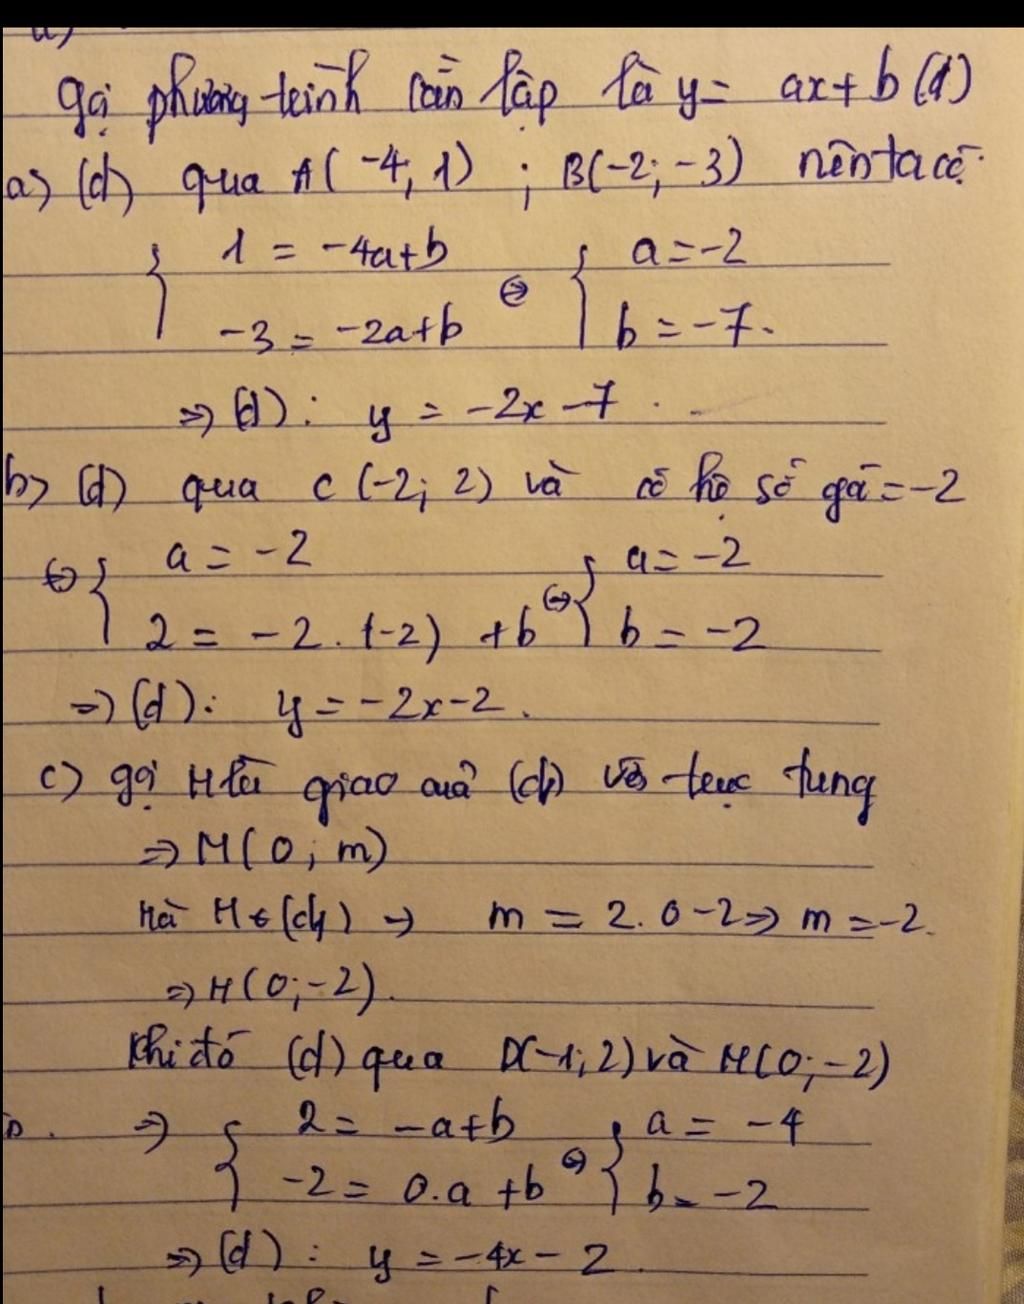 a)
gọi phương trình cần lập là y = ax + b (d)
a) (d) qua A(-4; 1) ; B(-2; -3) nên ta có:
{ 1 = -4a+b
-3 = -2a+b ⇔ { a = -2
b = -7.
⇒ (d): y = -2x - 7.
b) (d) qua C (-2; 2) và có hệ số góc = -2
⇔ { a = -2
2 = -2.(-2) + b ⇔ { a = -2
b = -2
⇒ (d): y = -2x - 2.
c) gọi M là giao của (d₁) với trục tung
⇒ M(0; m)
mà M ∈ (d₁) → m = 2.0 - 2 ⇒ m = -2.
⇒ M(0; -2).
Khi đó (d) qua D(-1; 2) và M(0; -2)
⇒ { 2 = -a+b
-2 = 0.a + b ⇔ { a = -4
b = -2
⇒ (d): y = -4x - 2.